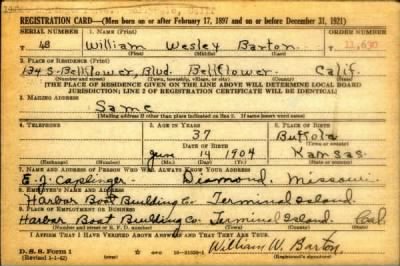 REGISTRATION CARD—(Men born on or after February 17, 1897 and on or before December 31, 1921)
SERIAL NUMBER 1. NAME (Print) ORDER NUMBER
T 48 William Wesley Barton 11,630
(First) (Middle) (Last)
2. PLACE OF RESIDENCE (Print)
134 S. Bellflower, Blvd. Bellflower Calif.
(Number and street) (Town, township, village, or city) (County) (State)
[THE PLACE OF RESIDENCE GIVEN ON THE LINE ABOVE WILL DETERMINE LOCAL BOARD
JURISDICTION; LINE 2 OF REGISTRATION CERTIFICATE WILL BE IDENTICAL]
3. MAILING ADDRESS
Same
(Mailing address if other than place indicated on line 2. If same insert word same)
4. TELEPHONE 5. AGE IN YEARS 6. PLACE OF BIRTH
37 Buffola
DATE OF BIRTH (Town or county)
Jun 14 1904 Kansas
(Exchange) (Number) (Mo.) (Day) (Yr.) (State or country)
7. NAME AND ADDRESS OF PERSON WHO WILL ALWAYS KNOW YOUR ADDRESS
E. J. Caplinger Diamond, Missouri
8. EMPLOYER'S NAME AND ADDRESS
Harbor Boat Building Co. Terminal Island.
9. PLACE OF EMPLOYMENT OR BUSINESS
Harbor Boat Building Co. Terminal Island. Cal
(Number and street or R. F. D. number) (Town) (County) (State)
I AFFIRM THAT I HAVE VERIFIED ABOVE ANSWERS AND THAT THEY ARE TRUE.
D. S. S. Form 1
(Revised 1-1-42) (over) 16-21630-1
William W. Barton